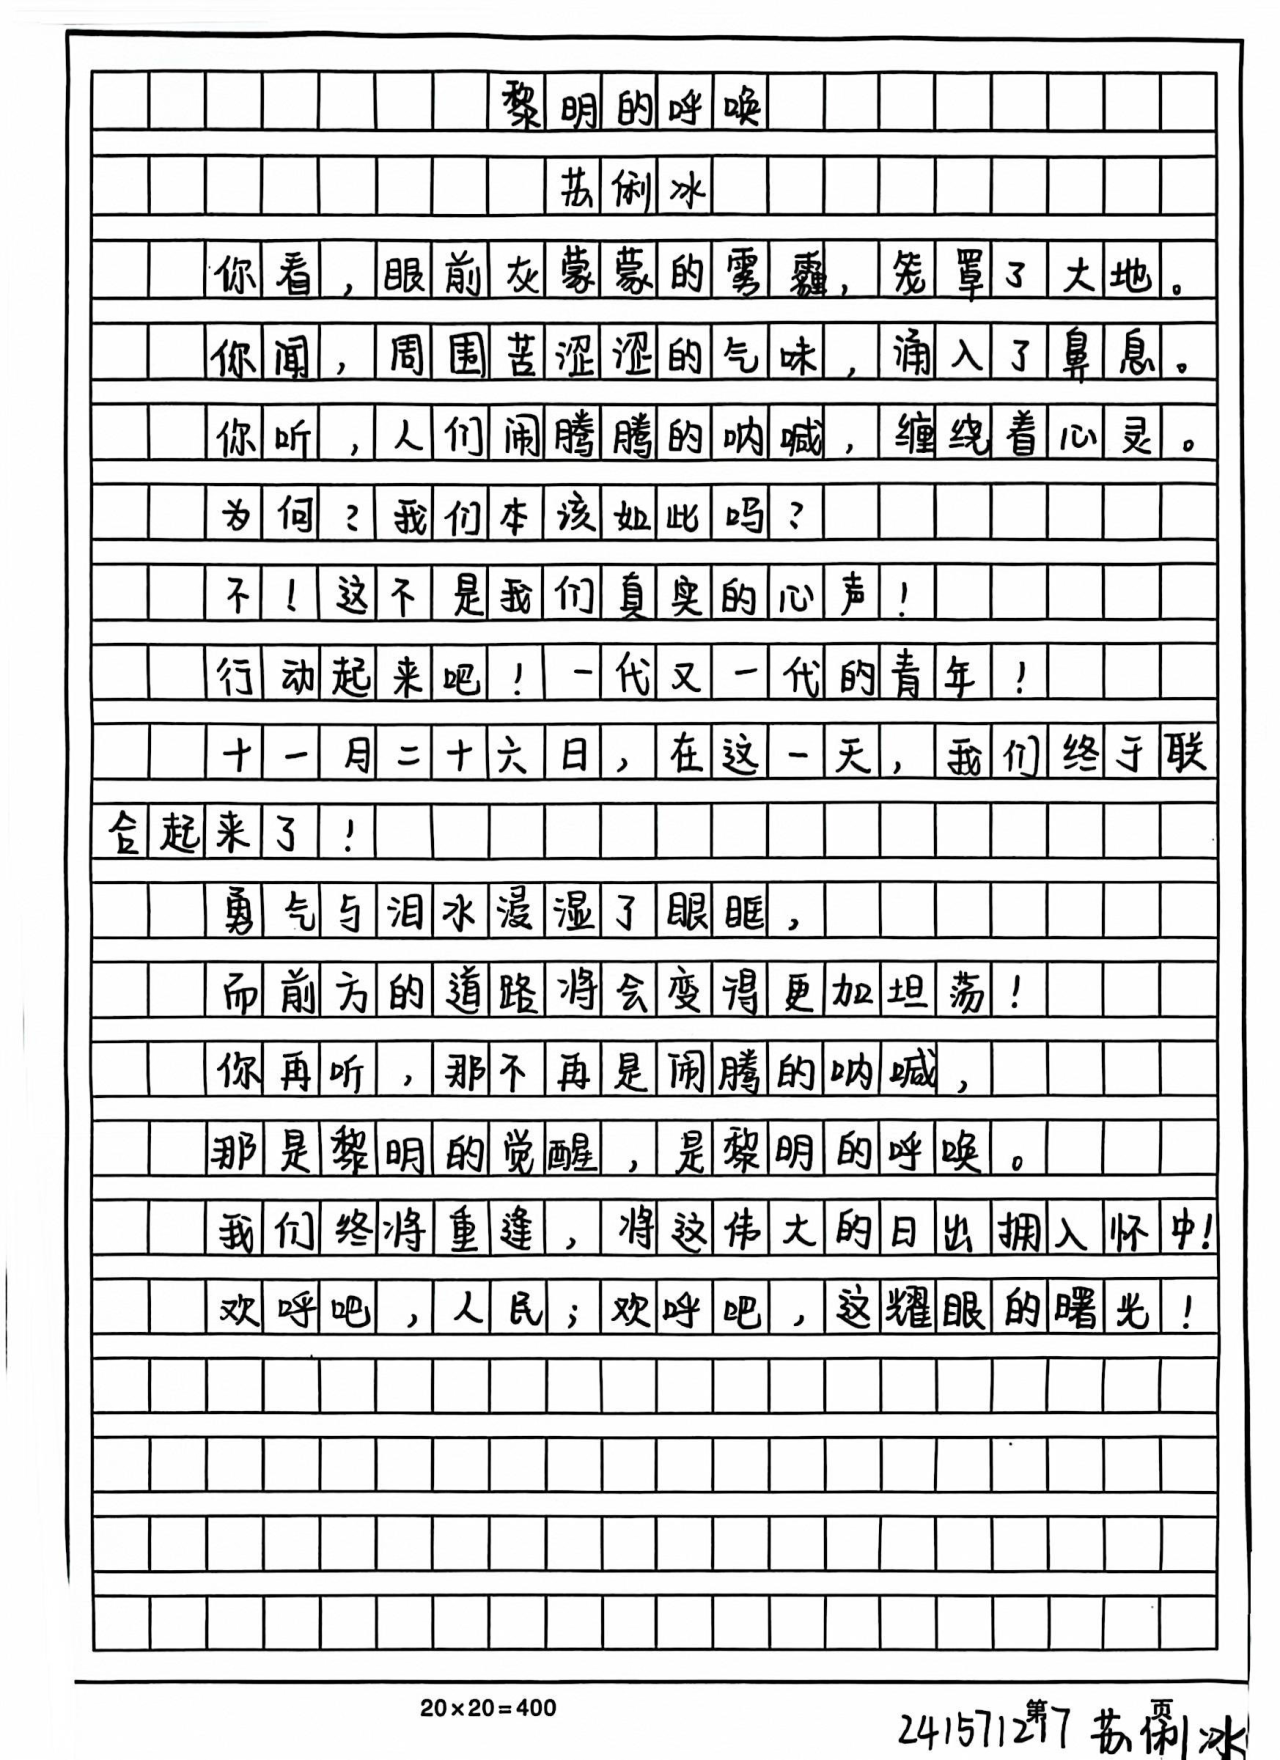 黎明的呼唤
苏俐冰
你看，眼前灰蒙蒙的雾霾，笼罩了大地。
你闻，周围苦涩涩的气味，涌入了鼻息。
你听，人们闹腾腾的呐喊，缠绕着心灵。
为何？我们本该如此吗？
不！这不是我们真实的心声！
行动起来吧！一代又一代的青年！
十一月二十六日，在这一天，我们终于联
合起来了！
勇气与泪水浸湿了眼眶，
而前方的道路将会变得更加坦荡！
你再听，那不再是闹腾的呐喊，
那是黎明的觉醒，是黎明的呼唤。
我们终将重逢，将这伟大的日出拥入怀中！
欢呼吧，人民；欢呼吧，这耀眼的曙光！
20×20=400
第 页
241571217 苏俐冰